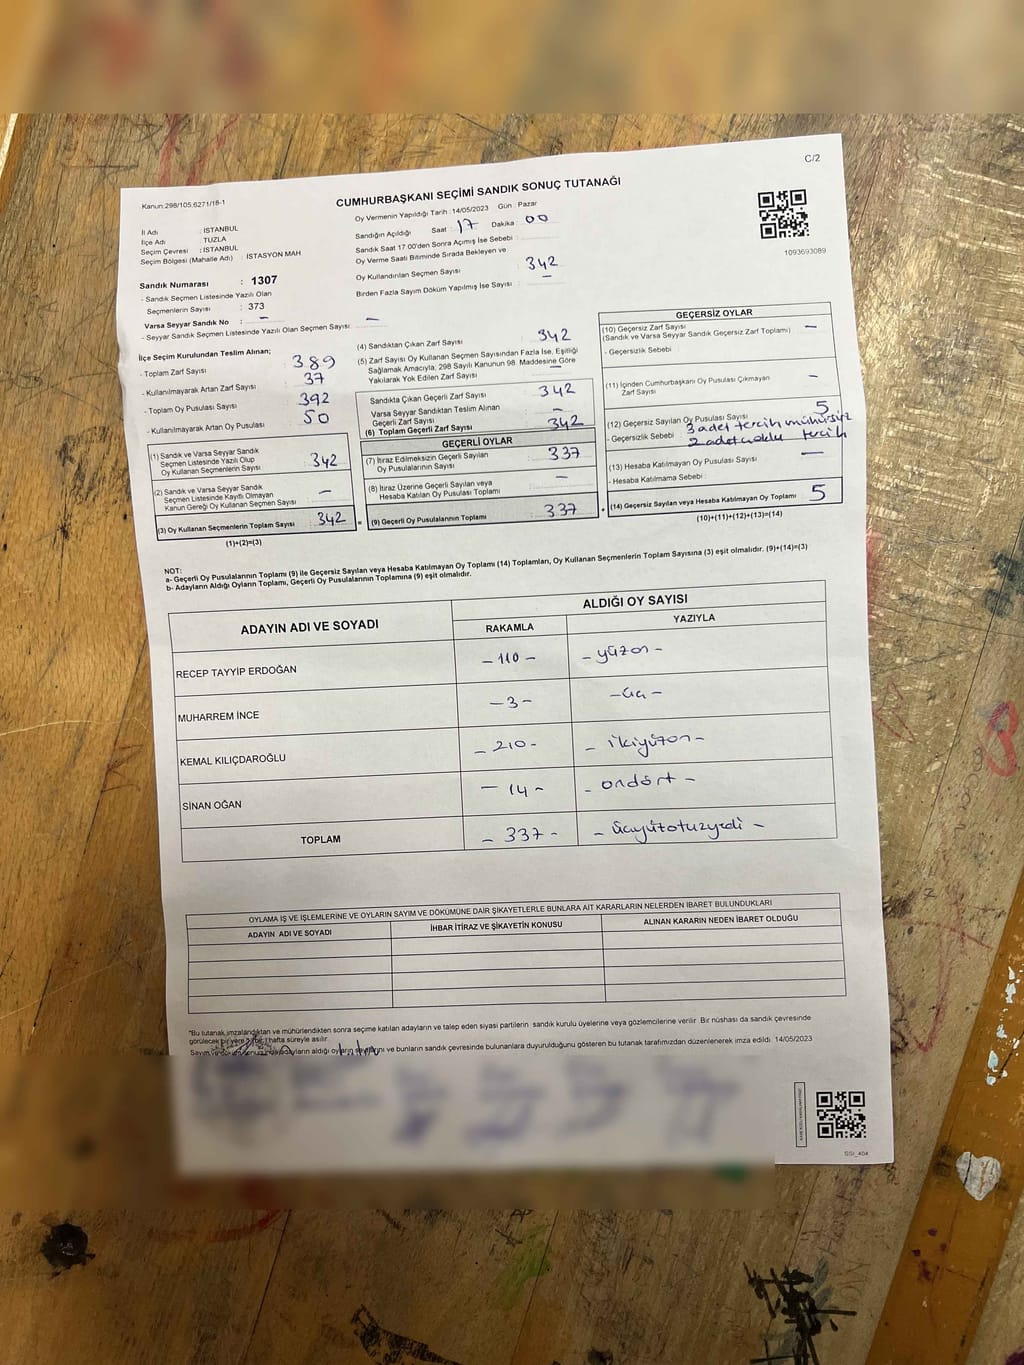 C/2
Kanun:298/105,6271/18-1
CUMHURBAŞKANI SEÇİMİ SANDIK SONUÇ TUTANAĞI
İl Adı : İSTANBUL
İlçe Adı : TUZLA
Seçim Çevresi : İSTANBUL
Seçim Bölgesi (Mahalle Adı) : İSTASYON MAH
Oy Vermenin Yapıldığı Tarih : 14/05/2023 Gün : Pazar
Sandığın Açıldığı Saat : 17 Dakika : 00
Sandık Saat 17.00'den Sonra Açılmış İse Sebebi :
Oy Verme Saati Bitiminde Sırada Bekleyen ve
Oy Kullandırılan Seçmen Sayısı : 342
Birden Fazla Sayım Döküm Yapılmış İse Sayısı : –
1093693089
Sandık Numarası : 1307
- Sandık Seçmen Listesinde Yazılı Olan
Seçmenlerin Sayısı : 373
Varsa Seyyar Sandık No : –
- Seyyar Sandık Seçmen Listesinde Yazılı Olan Seçmen Sayısı: –
İlçe Seçim Kurulundan Teslim Alınan;
- Toplam Zarf Sayısı : 389
- Kullanılmayarak Artan Zarf Sayısı : 37
- Toplam Oy Pusulası Sayısı : 392
- Kullanılmayarak Artan Oy Pusulası : 50
(1) Sandık ve Varsa Seyyar Sandık
Seçmen Listesinde Yazılı Olup
Oy Kullanan Seçmenlerin Sayısı : 342
(2) Sandık ve Varsa Seyyar Sandık
Seçmen Listesinde Kayıtlı Olmayan
Kanun Gereği Oy Kullanan Seçmen Sayısı : –
(3) Oy Kullanan Seçmenlerin Toplam Sayısı : 342
(1)+(2)=(3)
(4) Sandıktan Çıkan Zarf Sayısı : 342
(5) Zarf Sayısı Oy Kullanan Seçmen Sayısından Fazla İse, Eşitliği
Sağlamak Amacıyla; 298 Sayılı Kanunun 98. Maddesine Göre
Yakılarak Yok Edilen Zarf Sayısı : –
Sandıkta Çıkan Geçerli Zarf Sayısı : 342
Varsa Seyyar Sandıktan Teslim Alınan
Geçerli Zarf Sayısı : –
(6) Toplam Geçerli Zarf Sayısı : 342
GEÇERLİ OYLAR
(7) İtiraz Edilmeksizin Geçerli Sayılan
Oy Pusulalarının Sayısı : 337
(8) İtiraz Üzerine Geçerli Sayılan veya
Hesaba Katılan Oy Pusulası Toplamı : –
= (9) Geçerli Oy Pusulalarının Toplamı : 337
GEÇERSİZ OYLAR
(10) Geçersiz Zarf Sayısı : –
(Sandık ve Varsa Seyyar Sandık Geçersiz Zarf Toplamı)
- Geçersizlik Sebebi :
(11) İçinden Cumhurbaşkanı Oy Pusulası Çıkmayan
Zarf Sayısı : –
(12) Geçersiz Sayılan Oy Pusulası Sayısı : 5
- Geçersizlik Sebebi : 3 adet tercih mühürsüz
2 adet çoklu tercih
(13) Hesaba Katılmayan Oy Pusulası Sayısı : –
- Hesaba Katılmama Sebebi :
+ (14) Geçersiz Sayılan veya Hesaba Katılmayan Oy Toplamı : 5
(10)+(11)+(12)+(13)=(14)
NOT:
a- Geçerli Oy Pusulalarının Toplamı (9) ile Geçersiz Sayılan veya Hesaba Katılmayan Oy Toplamı (14) Toplamları, Oy Kullanan Seçmenlerin Toplam Sayısına (3) eşit olmalıdır. (9)+(14)=(3)
b- Adayların Aldığı Oyların Toplamı, Geçerli Oy Pusulalarının Toplamına (9) eşit olmalıdır.
ADAYIN ADI VE SOYADI ALDIĞI OY SAYISI
RAKAMLA YAZIYLA
RECEP TAYYİP ERDOĞAN – 110 – – yüzon –
MUHARREM İNCE – 3 – – üç –
KEMAL KILIÇDAROĞLU – 210 – – ikiyüzon –
SİNAN OĞAN – 14 – – ondört –
TOPLAM – 337 – – üçyüzotuzyedi –
OYLAMA İŞ VE İŞLEMLERİNE VE OYLARIN SAYIM VE DÖKÜMÜNE DAİR ŞİKAYETLERLE BUNLARA AİT KARARLARIN NELERDEN İBARET BULUNDUKLARI
ADAYIN ADI VE SOYADI İHBAR İTİRAZ VE ŞİKAYETİN KONUSU ALINAN KARARIN NEDEN İBARET OLDUĞU
"Bu tutanak imzalandıktan ve mühürlendikten sonra seçime katılan adayların ve talep eden siyasi partilerin sandık kurulu üyelerine veya gözlemcilerine verilir. Bir nüshası da sandık çevresinde
görülecek bir yere bir hafta süreyle asılır.
adayların aldığı oyların sayımını ve bunların sandık çevresinde bulunanlara duyurulduğunu gösteren bu tutanak tarafımızdan düzenlenerek imza edildi. 14/05/2023